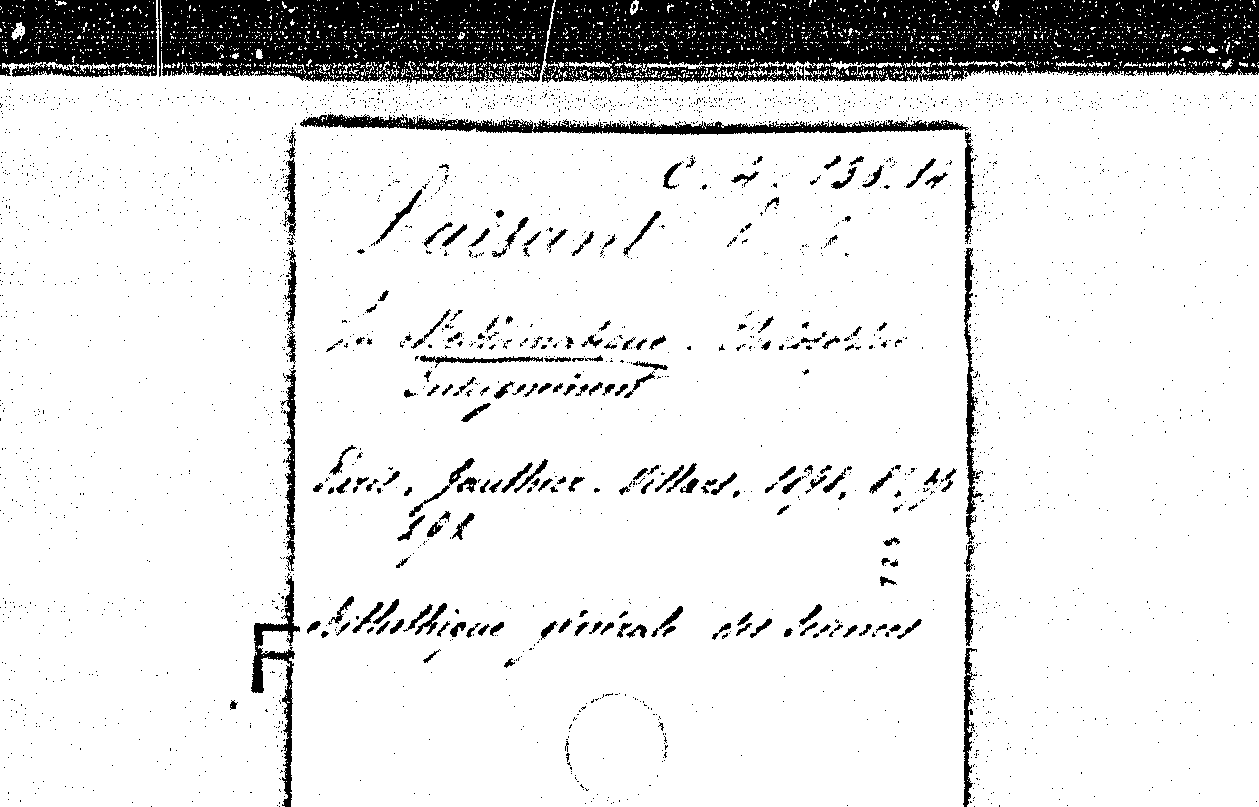 C. 4. 138.14
Laisant
La Mathématique. Philosophie
Enseignement
Paris, Gauthier-Villars, 1898, 8°, pp
292
723
Bibliothèque générale des Sciences